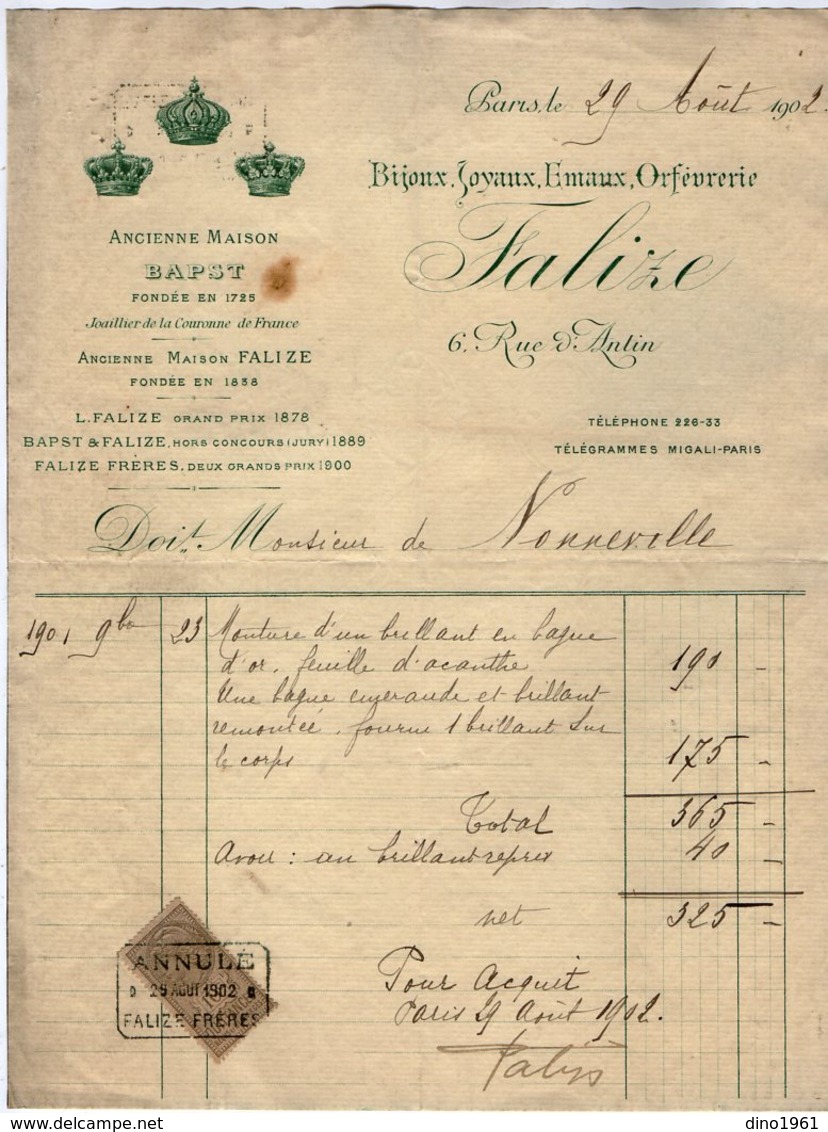 Paris, le 29 Août 1902.
Bijoux, Joyaux, Emaux, Orfèvrerie
Falize
6, Rue d'Antin
TÉLÉPHONE 226-33
TÉLÉGRAMMES MIGALI-PARIS
ANCIENNE MAISON
BAPST
FONDÉE EN 1725
Joaillier de la Couronne de France
ANCIENNE MAISON FALIZE
FONDÉE EN 1838
L. FALIZE GRAND PRIX 1878
BAPST & FALIZE, HORS CONCOURS (JURY) 1889
FALIZE FRÈRES, DEUX GRANDS PRIX 1900
Doit Monsieur de Nonneville
1901 9bre 23 Monture d'un brillant en bague
d'or, feuille d'acanthe 190 -
Une bague emeraude et brillant
remontée, fourni 1 brillant sur
le corps 175 -
Total 365 -
Avoir : un brillant repris 40 -
net 325 -
Pour Acquit
Paris 29 Août 1902.
Falize
ANNULÉ
29 AOUT 1902
FALIZE FRÈRES
dino1961